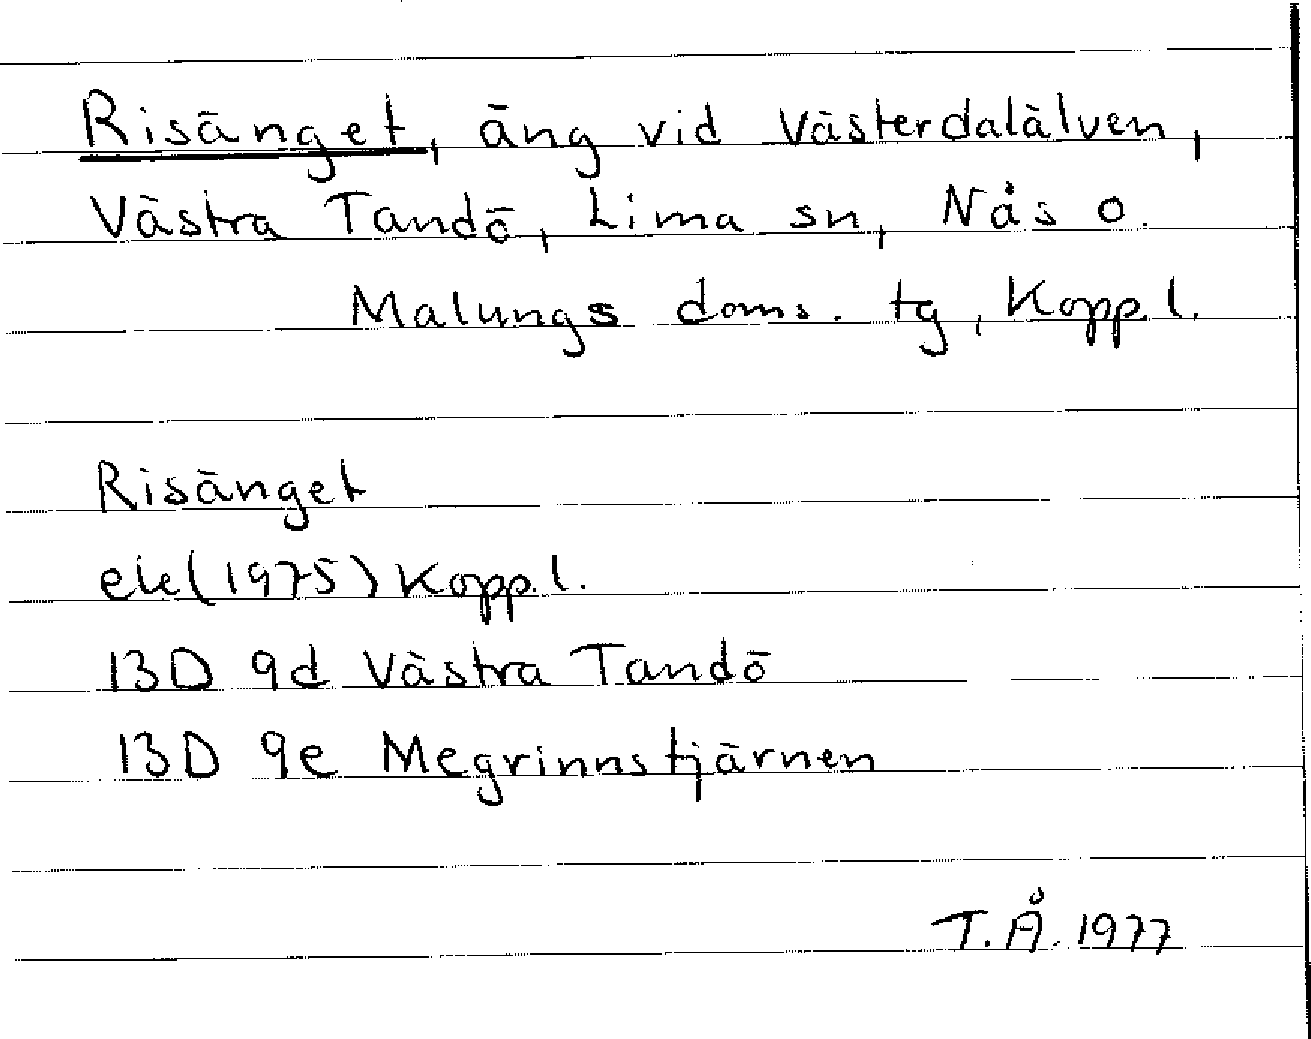 Risänget, äng vid Västerdalälven,
Västra Tandö, Lima sn, Nås o.
Malungs doms. tg, Kopp. l.
Risänget
ek (1975) Kopp. l.
13D 9d Västra Tandö
13D 9e Megrinnstjärnen
T.Å. 1977